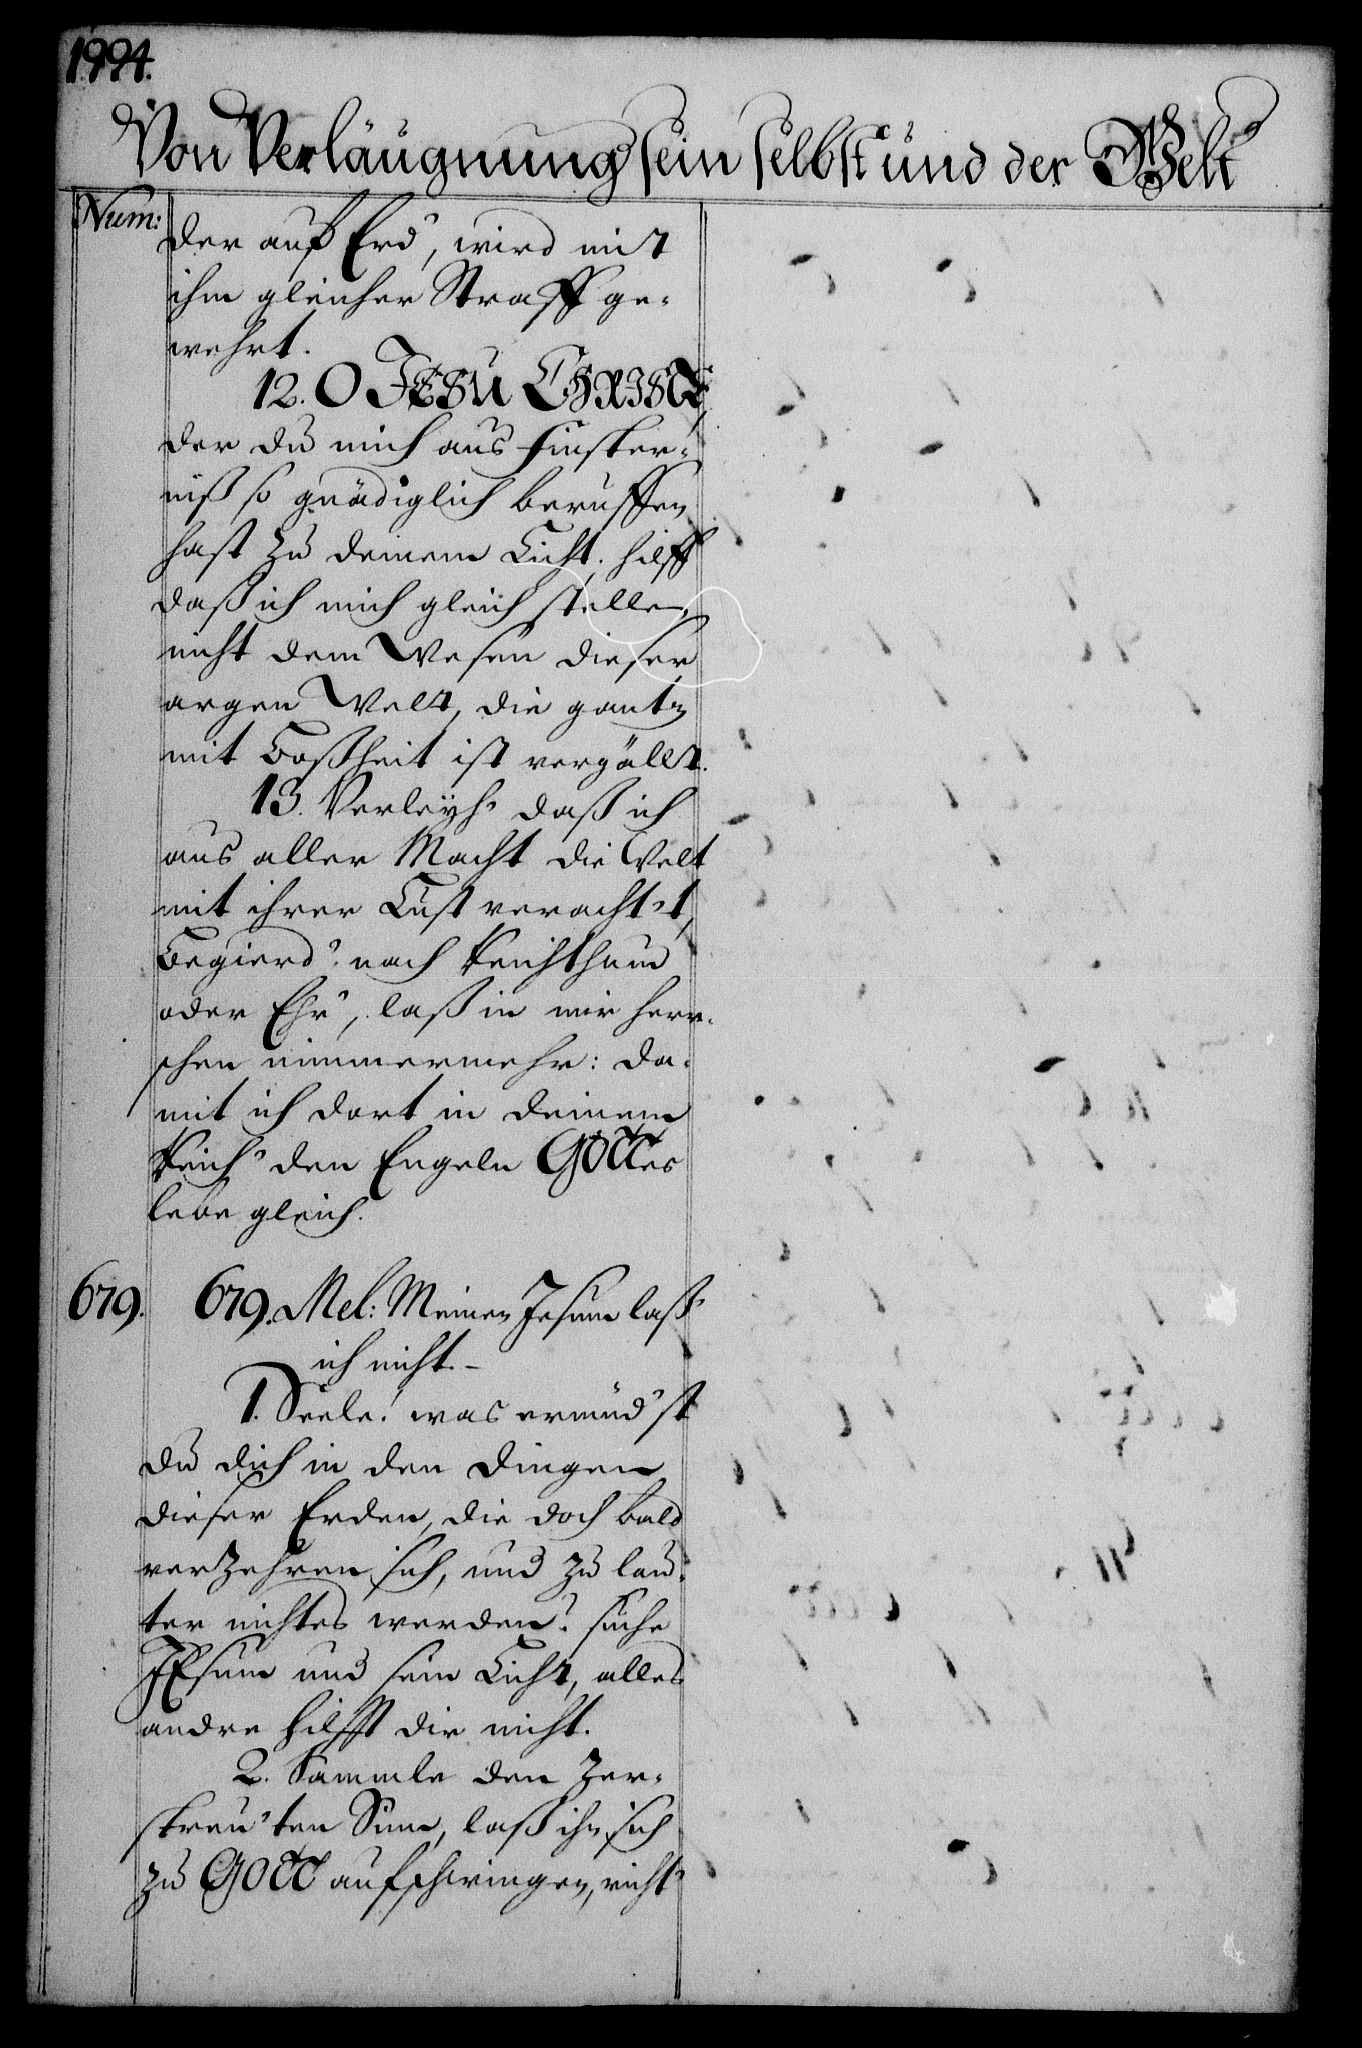 1994.
Von Verläugnung sein selbst und der Welt
Num:
der auf Erd', wird mit
ihm gleicher Straff ge-
wehrt.
12. O JESU CHRISTE,
der du mich aus Finster-
niß so gnädiglich beruffen
hast zu deinem Licht, hilff
daß ich mich gleich stelle
nicht dem Wesen dieser
argen Welt, die gantz
mit Boßheit ist vergällt.
13. Verleyh' daß ich
aus aller Macht die Welt
mit ihrer Lust veracht't,
Begierd' nach Reichthum
oder Ehr', laß in mir herr-
schen nimmermehr: da-
mit ich dort in deinem
Reich' den Engeln GOttes
lebe gleich.
679. 679. Mel: Meinen Jesum laß'
ich nicht.-
1. Seele! was ermüd'st
du dich in den Dingen
dieser Erden, die doch bald
verzehren sich, und zu lau-
ter nichtes werden? suche
JEsum und sein Licht, alles
andre hilfft dir nicht.
2. Sammle den zer-
streu'ten Sinn, laß ihn sich
zu GOtt aufschwingen, richt'